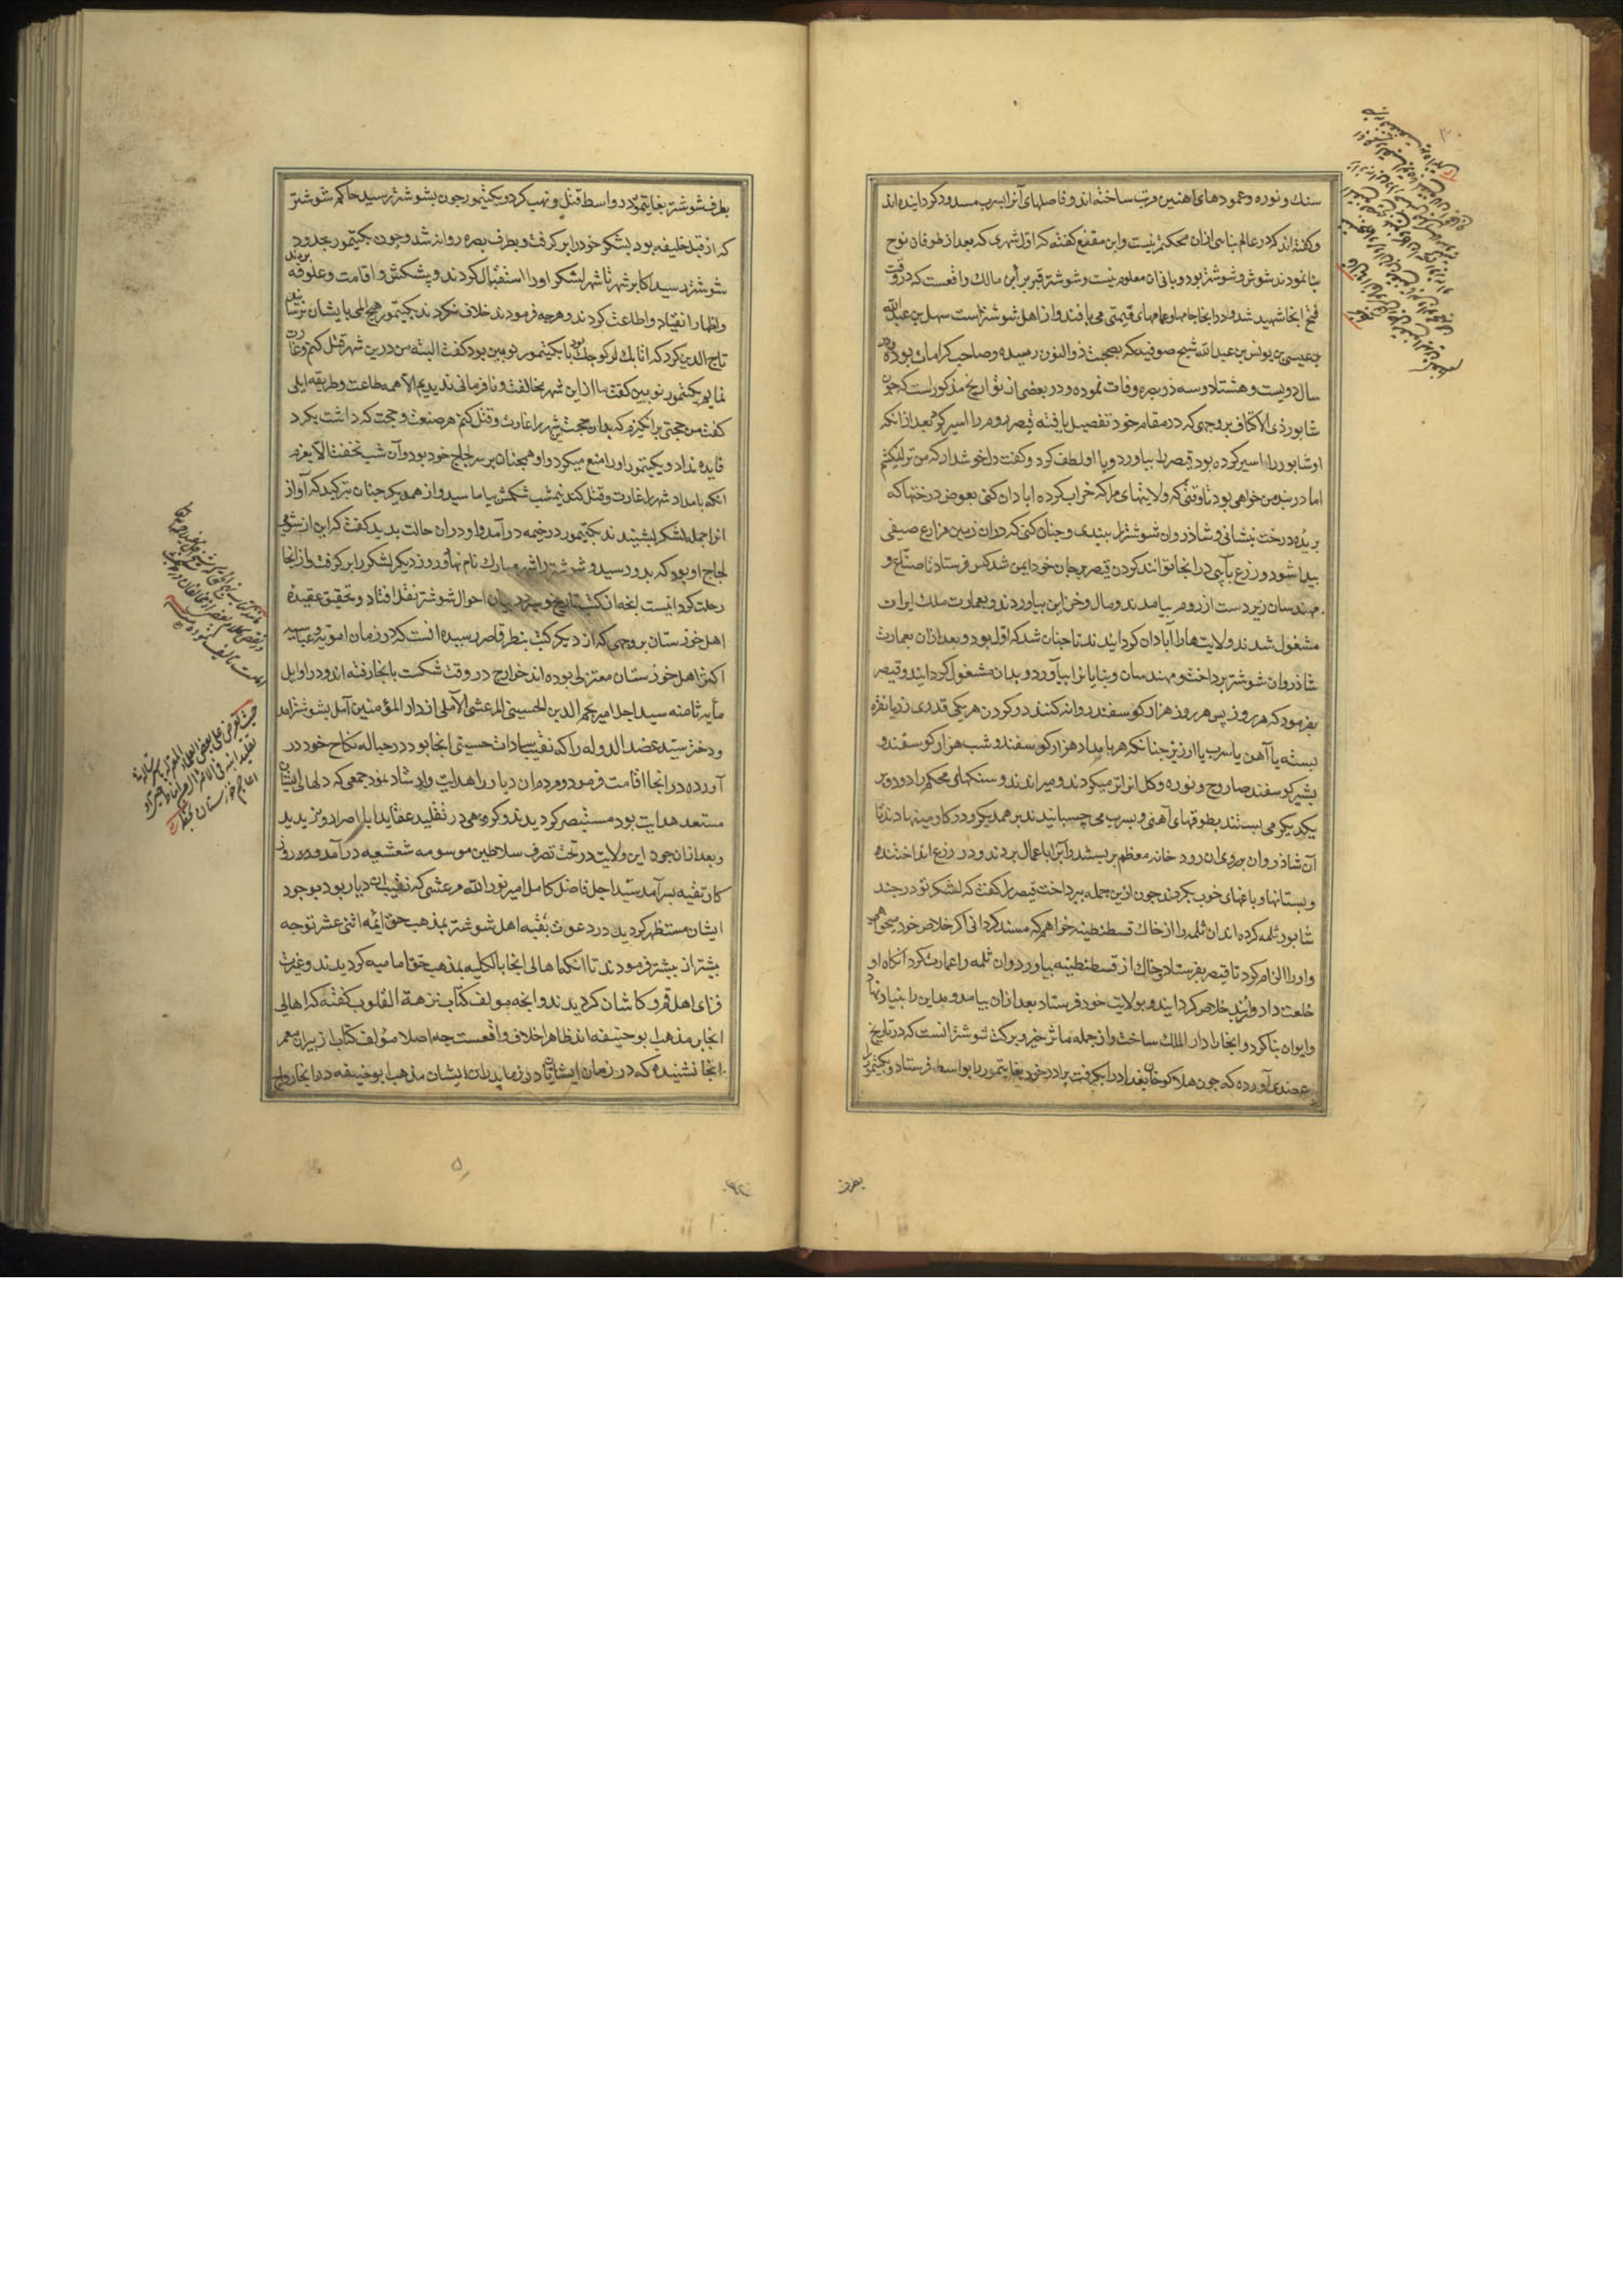 سنك و نوره و عمودهای اهنین مرتب ساخته اند و فاصلهای آنرا بسرب مسدود کردانیده اند
و کفته اند که در عالم بنائی ازان محکمتر نیست و ابن مقفع کفته که اول شهری که بعد از طوفان نوح
بنا نمودند شوش و شوشتر بود و بانی ان معلوم نیست و شوشتر قبر براء بن مالك واقعست که در وقت
فتح انجا شهید شد و در انجا جامها و عمامهای قیمتی می بافند و از اهل شوشتر است سهل بن عبدالله
بن عیسی بن یونس بن عبدالله شیخ صوفیه که بصحبت ذوالنون رسیده و صاحب کرامات بوده و در
سال دویست و هشتاد و سه در بصره وفات نموده و در بعضی از تواریخ مذکور است که چون
شابور ذی الاکتاف بر وجهی که در مقام خود تفصیل یافته قیصر روم را اسیر کرد بعد از انکه
او شابور را اسیر کرده بود قیصر را بیاورد و با او لطف کرد و کفت دل خوش دار که من ترا نکشم
اما در بند من خواهی بود تا وقتی که ولایتهای مرا که خراب کرده ابادان کنی بعوض درختها که
بریده درخت بنشانی و شاذروان شوشتر را ببندی و چنان کنی که دران زمین مزارع صیفی
پیدا شود و زرع یا پی در انجا توانند کردن قیصر بر جان خود ایمن شد کس فرستاد تا صناع و
مهندسان زبردست از روم بیامدند و مال و خزاین بیاوردند و بعمارت ملك ایران
مشغول شدند و ولایت ها را آبادان کردانیدند تا چنان شد که اول بود و بعد ازان بعمارت
شاذروان شوشتر پرداخت و مهندسان و بنایانرا بیاورد و بدان مشغول کردانید و قیصر
بفرمود که هر روز پس هر روز هزار کوسفند روانه کنند در کردن هر یکی قدری زر یا نقره
بسته یا آهن یا سرب یا ارزیز چنانکه هر بامداد هزار کوسفند و شب هزار کوسفند و
بشیر کوسفند صاروج و نوره و کل انرا تر میکردند و میراندند و سنکهای محکم را دور و بر
یکدیکر می بستند بطوقهای آهنی و بسرب می چسبانیدند بر همدیکر و در کار مینهادند تا
آن شاذروان بر روی ان رود خانه معظم ببستند و آنرا باعمال بردند و در زرع انداختند
و بستانها و باغهای خوب بکردند چون ازین جمله بپرداخت قیصر را کفت که لشکر تو در جند
شابور ثلمه کرده اند ان ثلمه را از خاك قسطنطینه خواهم که مسند کردانی اکر خلاص خود میخواهی
و او را الزام کرد تا قیصر بفرستاد و خاك از قسطنطینه بیاورد و ان ثلمه را عمارت کرد آنکاه او
خلعت داد و از بند خلاص کردانید و بولایت خود فرستاد بعد ازان بیامد و مداین را بنیاد نهاد
و ایوان بنا کرد و انجا را دار الملك ساخت و از جمله مآثر خیر و برکت شوشتر انست که در تاریخ
عضدی آورده که چون هلاکو خان بغداد را بکرفت برادر خود بغاتیمور را بواسط فرستاد و بکیتمور را
بطرف
بطرف شوشتر بغاتیمور در واسط قتل و نهب کرد و بکیتمور چون بشوشتر رسید حاکم شوشتر
که از قبل خلیفه بود لشکر خود را بر کرفت و بطرف بصره روانه شد و چون بکیتمور بحدود
شوشتر رسید اکابر شهر تا شهر لشکر او را استقبال کردند و پیشکش و اقامت و علوفه بردند
و اظهار انقیاد و اطاعت کردند و هر چه فرمودند خلاف نکردند بکیتمور هیچ المی بایشان نرسانید
تاج الدین کرد که اتابك لر کوچك بود با بکیتمور نویین بود کفت البته من درین شهر قتل کنم و غارت
نمایم بکیتمور نویین کفت ما از این شهر مخالفت و نافرمانی ندیدیم الا همه طاعت و طریقه ایلی
کفت من حجتی بر انکیزم که بدان حجت شهر را غارت و قتل کنم هر صنعت و حجت که داشت بکرد
فایده نداد و بکیتمور او را منع میکرد و او همچنان بر سر لجاج خود بود و آن شب نخفت الا بعزم
انکه بامداد شهر را غارت و قتل کند نیمشب شکمش بیاماسید و از هم دیکر چنان بترکید که آواز
انرا جمله لشکر بشنیدند بکیتمور در خیمه در آمد و او در ان حالت بدید کفت که این از شومی
لجاج او بود که بدو رسید و شوشتر را شهر مبارك نام نهاد و روز دیکر لشکر را بر کرفت و از انجا
رحلت کرد اینست انچه از کتب تاریخ و سیر در بیان احوال شوشتر بنظر افتاد و تحقیق عقیده
اهل خوزستان بر وجهی که از دیکر کتب بنظر قاصر رسیده انست که در زمان امویه و عباسیه
اکثر اهل خوزستان معتزلی بوده اند خوارج در وقت شکست بانجا رفته اند و در اوایل
مأیه ثامنه سید اجل امیر نجم الدین الحسینی المرعشی الآملی از دار المؤمنین آمل بشوشتر آمد
و دختر سید عضد الدوله را که نقیب سادات حسینی انجا بود در حباله نکاح خود در
آورده در انجا اقامت فرمود و مردمان دیار را هدایت و ارشاد نمود جمعی که دلهای ایشان
مستعد هدایت بود مستبصر کردیدند و کروهی در تقلید عقاید ابا اصرار ورزیدند
و بعد ازان چون این ولایت در تحت تصرف سلاطین موسومه شعشعیه در آمد و روز
کار تقیه بسر آمد سید اجل فاضل کامل امیر نور الله مرعشی که نقیب ان دیار بود بوجود
ایشان مستظهر کردید در دعوت بقیه اهل شوشتر بمذهب حق ایمه اثنی عشر توجه
بیشتر از پیشتر فرمودند تا آنکه اهالی انجا بالکلیه بمذهب حق امامیه کردیدند و غیرت
فزای اهل قم و کاشان کردیدند و انچه مولف کتاب نزهة القلوب کفته که اهالی
انجا بر مذهب ابو حنیفه اند ظاهرا خلاف واقعست چه اصلا مؤلف کتاب از پیران معمر
انجا نشنیده که در زمان ایشان یا در زمان پدران ایشان مذهب ابو حنیفه در انجا رواج